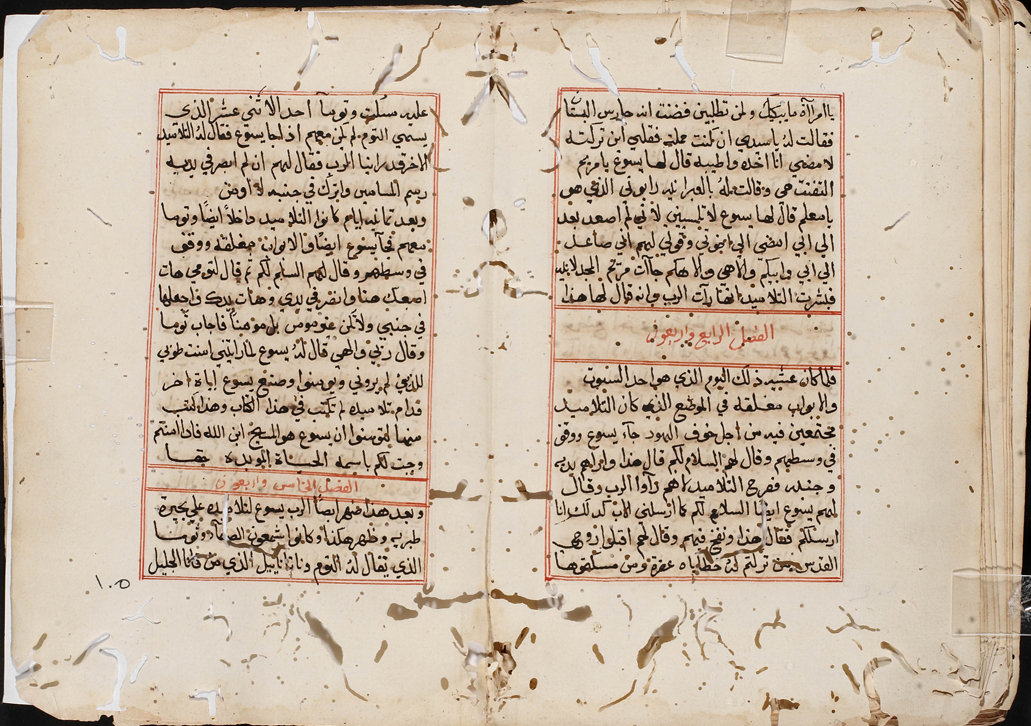 ياامراة مايبكيك ولمن تطلبين فضنت انه حارس البستان
فقالت له ياسيدي ان كنت حملته فقلي اين تركته
لامضي انا اخده واطيبه قال لها يسوع يامريم
التفتت هي وقالت له بالعبرانيه رابوني الذي هو
يامعلم قال لها يسوع لا تلمسيني لاني لم اصعد بعد
الي ابي امضي الي اخوتي وقولي لهم اني صاعد
الي ابي وابيكم والاهي والاهكم جاات مريم المجدلانيه
فبشرت التلاميد انها رات الرب وانه قال لها هذا
الفصل الرابع واربعون
فلما كان عشية دلك اليوم الذي هو احد السبوت
والابواب مغلقه في الموضع الذي كان التلاميد
مجتمعين فيه من اجل خوف اليهود جاء يسوع ووقف
في وسطهم وقال لهم السلام لكم قال هذا واراهم يديه
وجنبه ففرح التلاميد اهم راوا الرب وقال
لهم يسوع ايضا السلام لكم كما ارسلني الاب كدلك انا
ارسلكم فقال هذا ونفخ فيهم وقال لهم اقبلوا روح
القدس من تركتم له خطاياه غفرة ومن مسكتموها
عليه مسكت وتوما احد الاتني عشر الذي
يسمي التوم لم يكن معهم اذ جا يسوع فقال له التلاميد
الاخر قد راينا الرب فقال لهم ان لم ابصر في يديه
رسم المسامير واترك في جنبه لا اومن
وبعد تمانيه ايام كانوا التلاميد داخلا ايضا وتوما
معهم فجا يسوع ايضا والابواب مغلقه ووقف
في وسطهم وقال لهم السلام لكم تم قال لتوما هات
اصبعك هنا وانضر في يدي وهات يدك واجعلها
في جنبي ولا تكن غير مومن بل مومنا فاجاب توما
وقال ربي والهي قال له يسوع لما رايتني امنت طوبي
للذي لم يروني ويومنوا وصنع يسوع اياة اخر
قدام تلاميده لم تكتب في هذا الكتاب وهذا كتب
منها لتومنوا ان يسوع هو المسيح ابن الله فاذا امنتم
وجبت لكم باسمه الحياة الموبده حقا
الفصل الخامس واربعون
وبعد هذا ضهر ايضا الرب يسوع لتلاميده علي بحيرة
طبريه وظهر هكذا وكانوا شمعون الصفا وتوما
الذي يقال له التوم وناتاناييل الذي من قانا الجليل
١٠٥